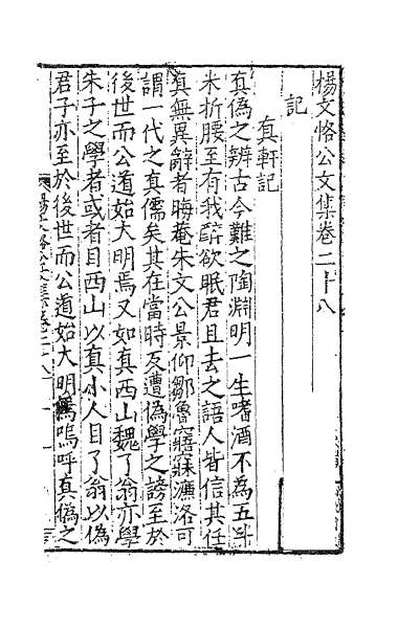 楊文恪公文集卷二十八
記
真軒記
真偽之辨古今難之陶淵明一生嗜酒不為五斗
米折腰至有我醉欲眠君且去之語人皆信其任
真無異辭者晦庵朱文公景仰鄒魯寤寐濂洛可
謂一代之真儒矣其在當時反遭偽學之謗至於
後世而公道始大明焉又如真西山魏了翁亦學
朱子之學者或者目西山以真小人目了翁以偽
君子亦至於後世而公道始大明焉嗚呼真偽之